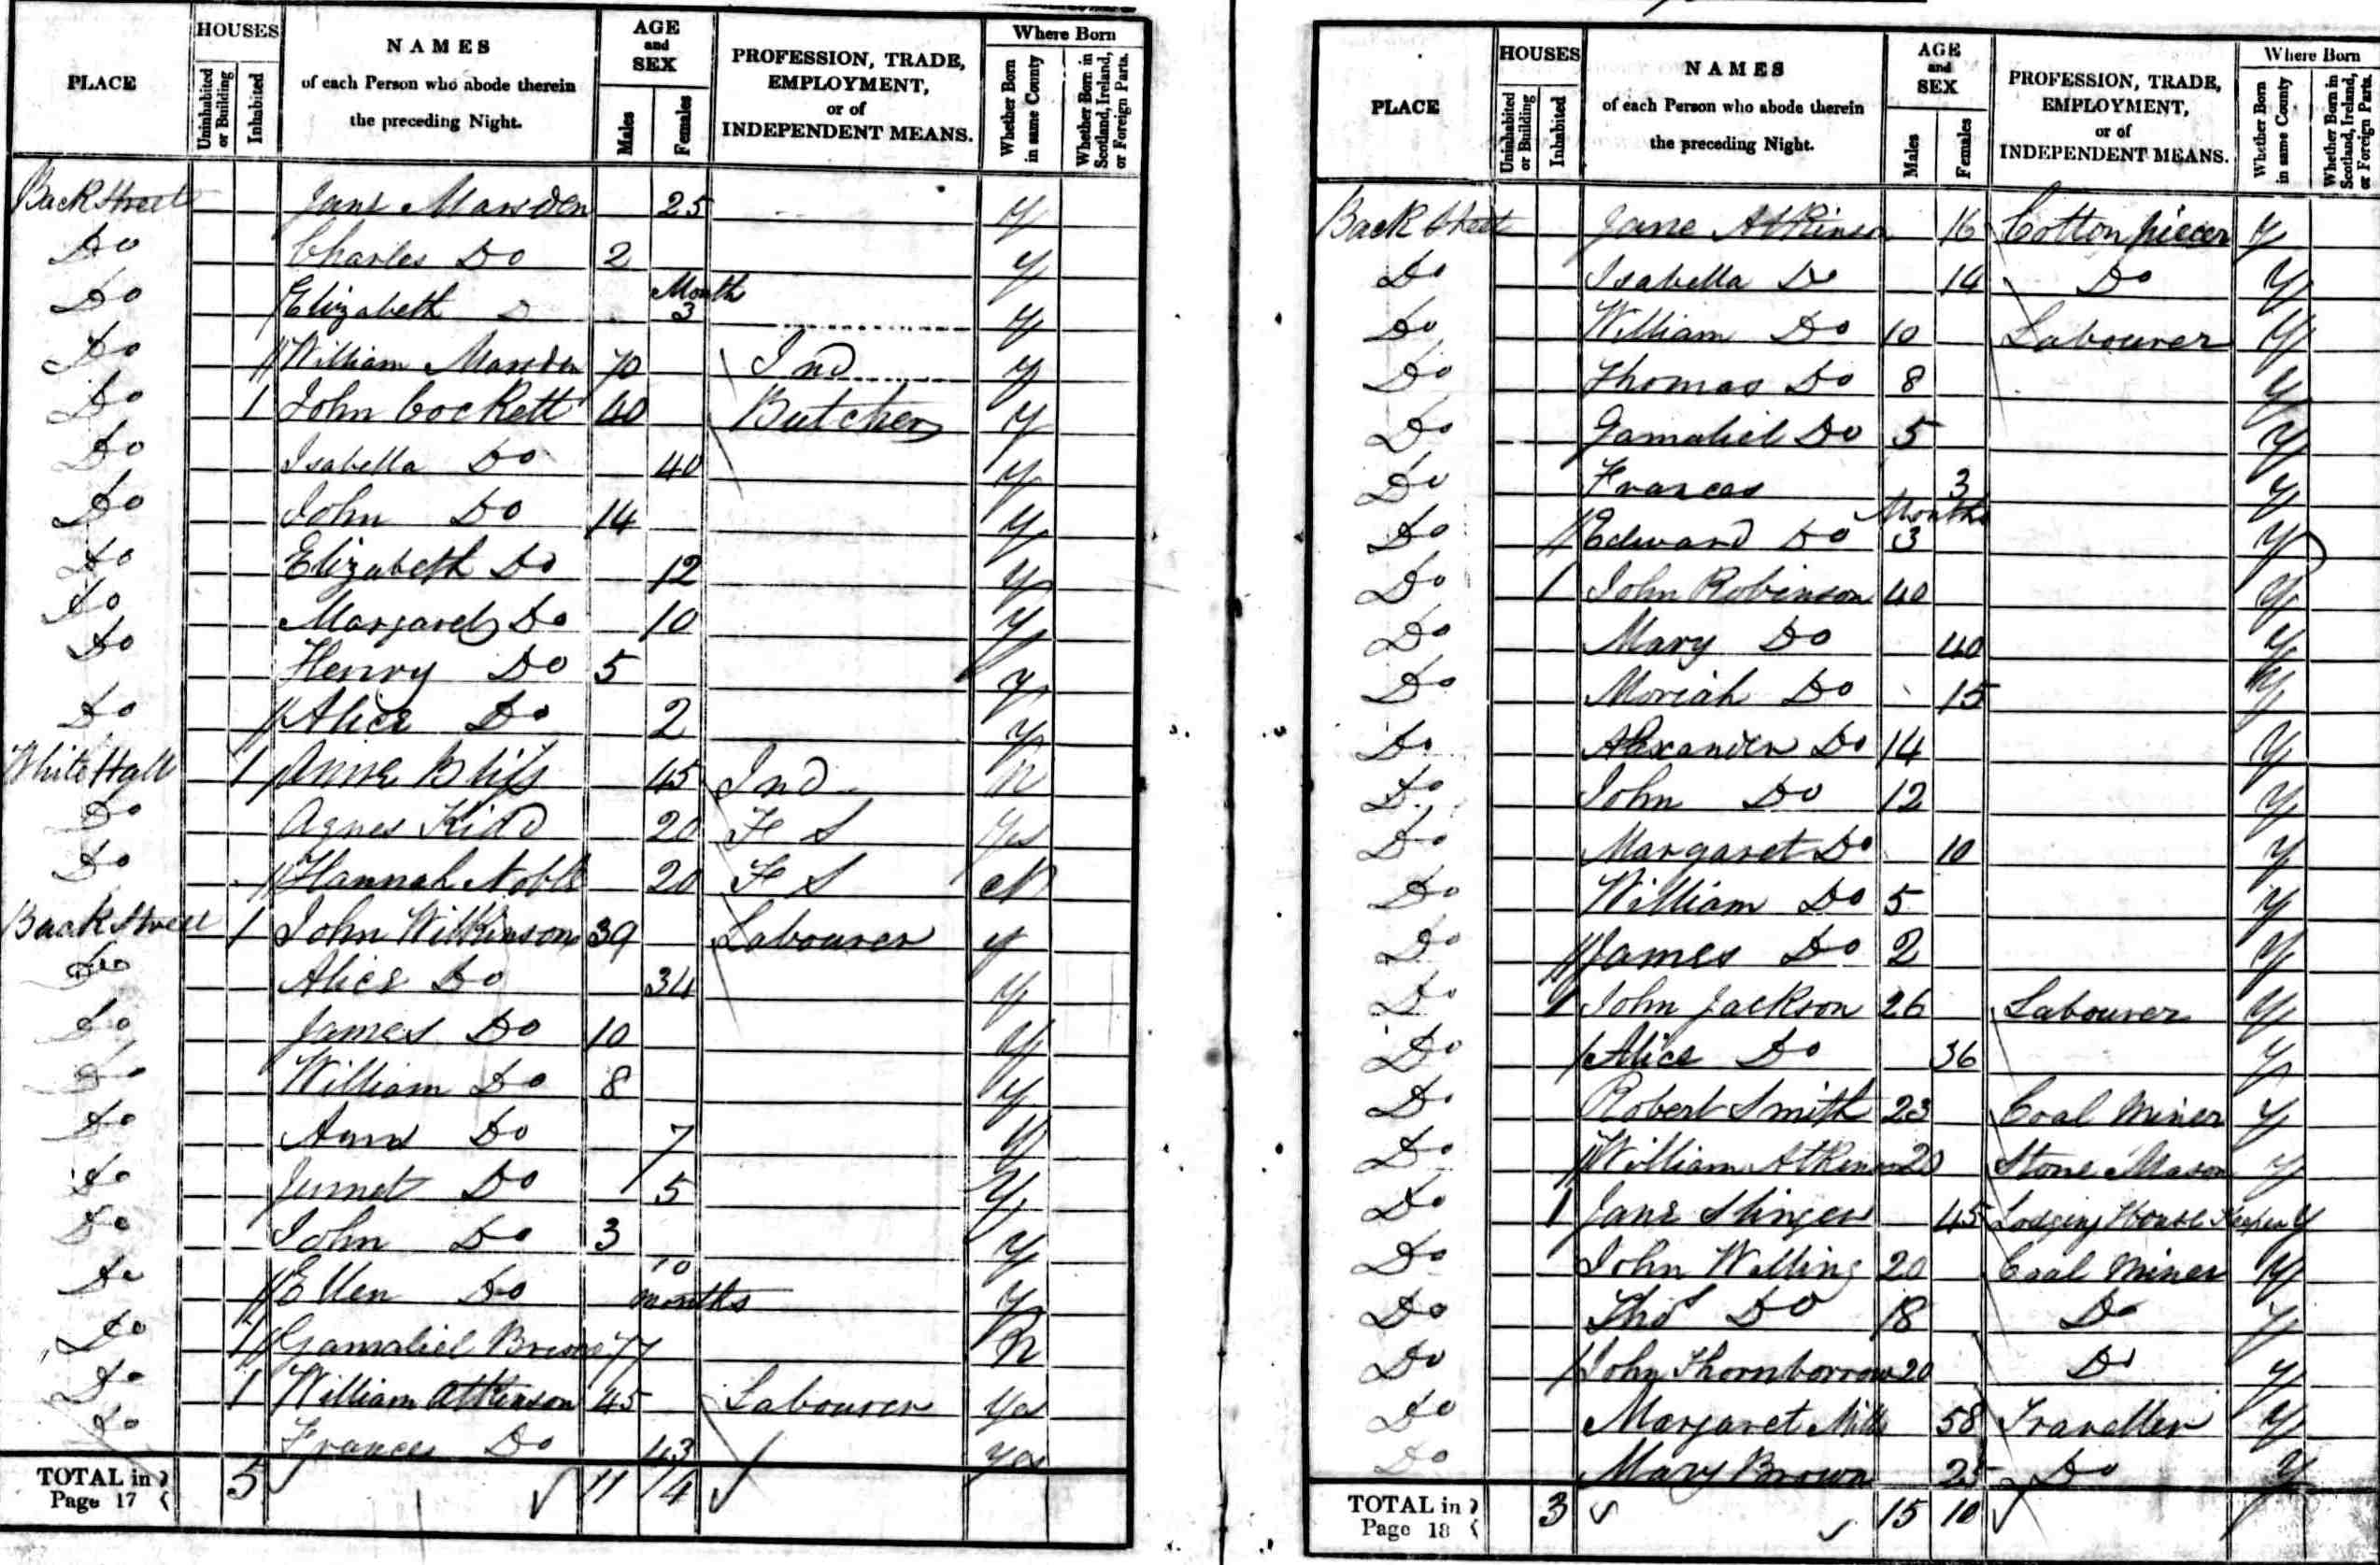 PLACE
HOUSES
Uninhabited or Building
Inhabited
NAMES
of each Person who abode therein
the preceding Night.
AGE
and
SEX
Males
Females
PROFESSION, TRADE,
EMPLOYMENT,
or of
INDEPENDENT MEANS.
Where Born
Whether Born in same County
Whether Born in Scotland, Ireland, or Foreign Parts.
Back Street Jane Marsden 25 Y
Do Charles Do 2 Y
Do Elizabeth D Month 3 Y
Do William Marsden 70 Ind Y
Do 1 John Cockett 40 Butcher Y
Do Isabella Do 40 Y
Do John Do 14 Y
Do Elizabeth Do 12 Y
Do Margaret Do 10 Y
Do Henry Do 5 Y
Do Alice Do 2 Y
White Hall 1 Anne Bliss 45 Ind N
Do Agnes Kidd 20 F S Yes
Do Hannah Noble 20 F S N
Back Street 1 John Wilkinson 39 Labourer Y
Do Alice Do 34 Y
Do James Do 10 Y
Do William Do 8 Y
Do Ann Do 7 Y
Do Do 5 Y
Do John Do 3 Y
Do Ellen Do 10 months Y
Do 1 Gamaliel Brown 77 N
Do 1 William Atkinson 45 Labourer Yes
Do Frances Do 43 Yes
TOTAL in Page 17 5 11 14
PLACE
HOUSES
Uninhabited or Building
Inhabited
NAMES
of each Person who abode therein
the preceding Night.
AGE
and
SEX
Males
Females
PROFESSION, TRADE,
EMPLOYMENT,
or of
INDEPENDENT MEANS.
Where Born
Whether Born in same County
Whether Born in Scotland, Ireland, or Foreign Parts.
Back Street Jane Atkinson 16 Cotton piecer Y
Do Isabella Do 14 Do Y
Do William Do 10 Labourer Y
Do Thomas Do 8 Y
Do Gamaliel Do 5 Y
Do Frances 3 Y
Do Edward Do Months 3 Y
Do 1 John Robinson 40 Y
Do Mary Do 40 Y
Do Moriah Do 15 Y
Do Alexander Do 14 Y
Do John Do 12 Y
Do Margaret Do 10 Y
Do William Do 5 Y
Do James Do 2 Y
Do 1 John Jackson 26 Labourer Y
Do Alice Do 36 Y
Do Robert Smith 23 Coal Miner Y
Do William Atkinson 20 Stone Mason Y
Do 1 Jane Slinger 45 Lodging House Keeper Y
Do John Welling 20 Coal Miner Y
Do Thos Do 18 Do Y
Do John Thornborrow 20 Do Y
Do Margaret Mills 58 Traveller Y
Do Mary Brown 25 Do Y
TOTAL in Page 18 3 15 10